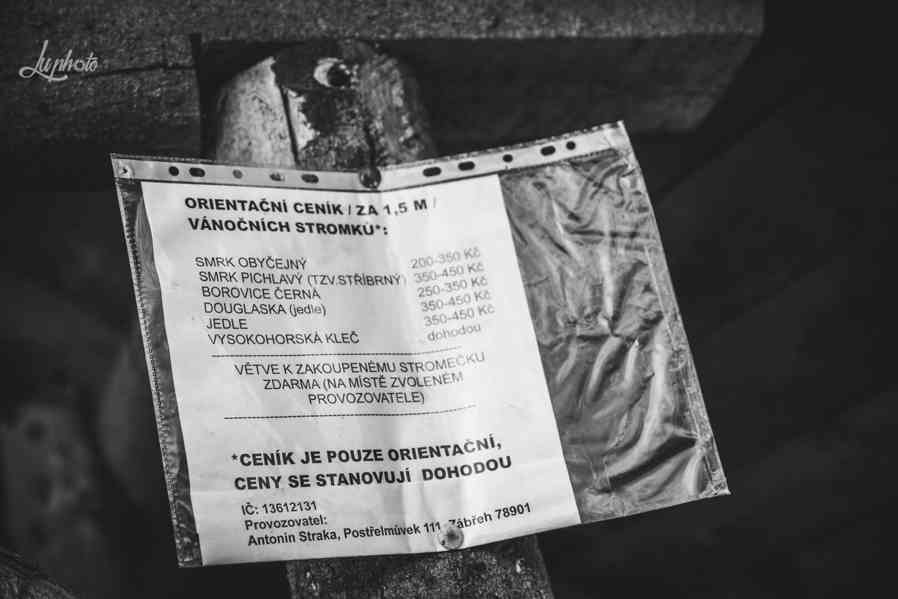 Ju photo
ORIENTAČNÍ CENÍK / ZA 1,5 M /
VÁNOČNÍCH STROMKŮ*:
SMRK OBYČEJNÝ 200-350 Kč
SMRK PICHLAVÝ (TZV.STŘÍBRNÝ) 350-450 Kč
BOROVICE ČERNÁ 250-350 Kč
DOUGLASKA (jedle) 350-450 Kč
JEDLE 350-450 Kč
VYSOKOHORSKÁ KLEČ dohodou
VĚTVE K ZAKOUPENÉMU STROMEČKU
ZDARMA (NA MÍSTĚ ZVOLENÉM
PROVOZOVATELE)
*CENÍK JE POUZE ORIENTAČNÍ,
CENY SE STANOVUJÍ DOHODOU
IČ: 13612131
Provozovatel:
Antonín Straka, Postřelmůvek 111, Zábřeh 78901